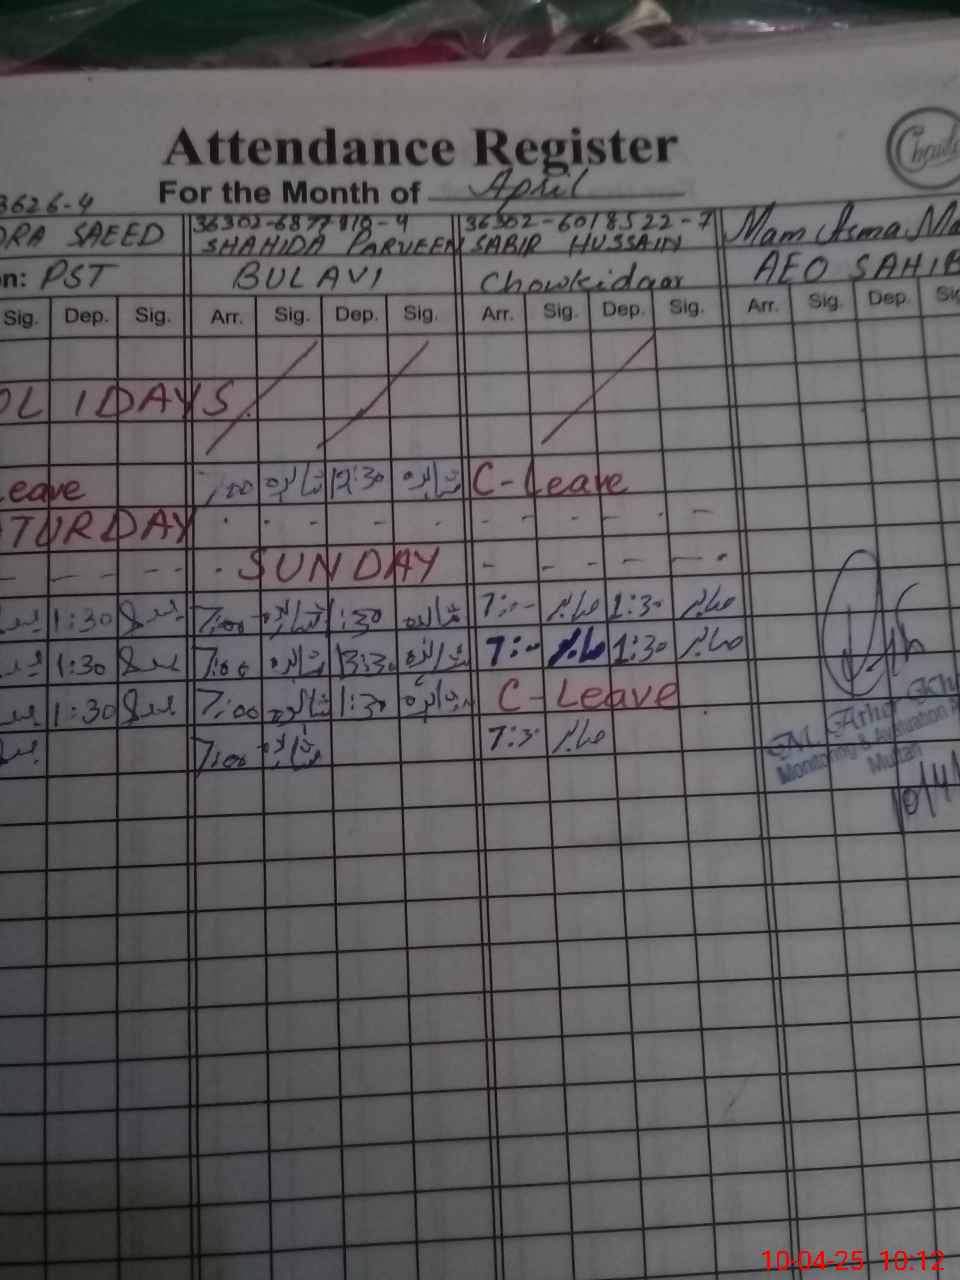 Attendance Register
For the Month of April
3626-4
SAEED 36302-6877919-4 36302-6018522-7 Mam Asma
SHAHIDA PARVEEN SABIR HUSSAIN
PST BULAVI Chowkidaar AEO SAHIB
Sig. Dep. Sig. Arr. Sig. Dep. Sig. Arr. Sig. Dep. Sig. Arr. Sig. Dep.
OLIDAYS
eave 7:00 شاہدہ 12:30 شاہدہ C-Leave
TURDAY
SUNDAY
1:30 7:00 شاہدہ 1:30 شاہدہ 7:00 صابر 1:30 صابر
1:30 7:00 شاہدہ شاہدہ 7:00 صابر 1:30 صابر
1:30 7:00 شاہدہ 1:30 شاہدہ C-Leave
7:00 شاہدہ 7:3 صابر
M. Athar
Monitoring & Evaluation
Multan
10/4/
10-04-25 10:12